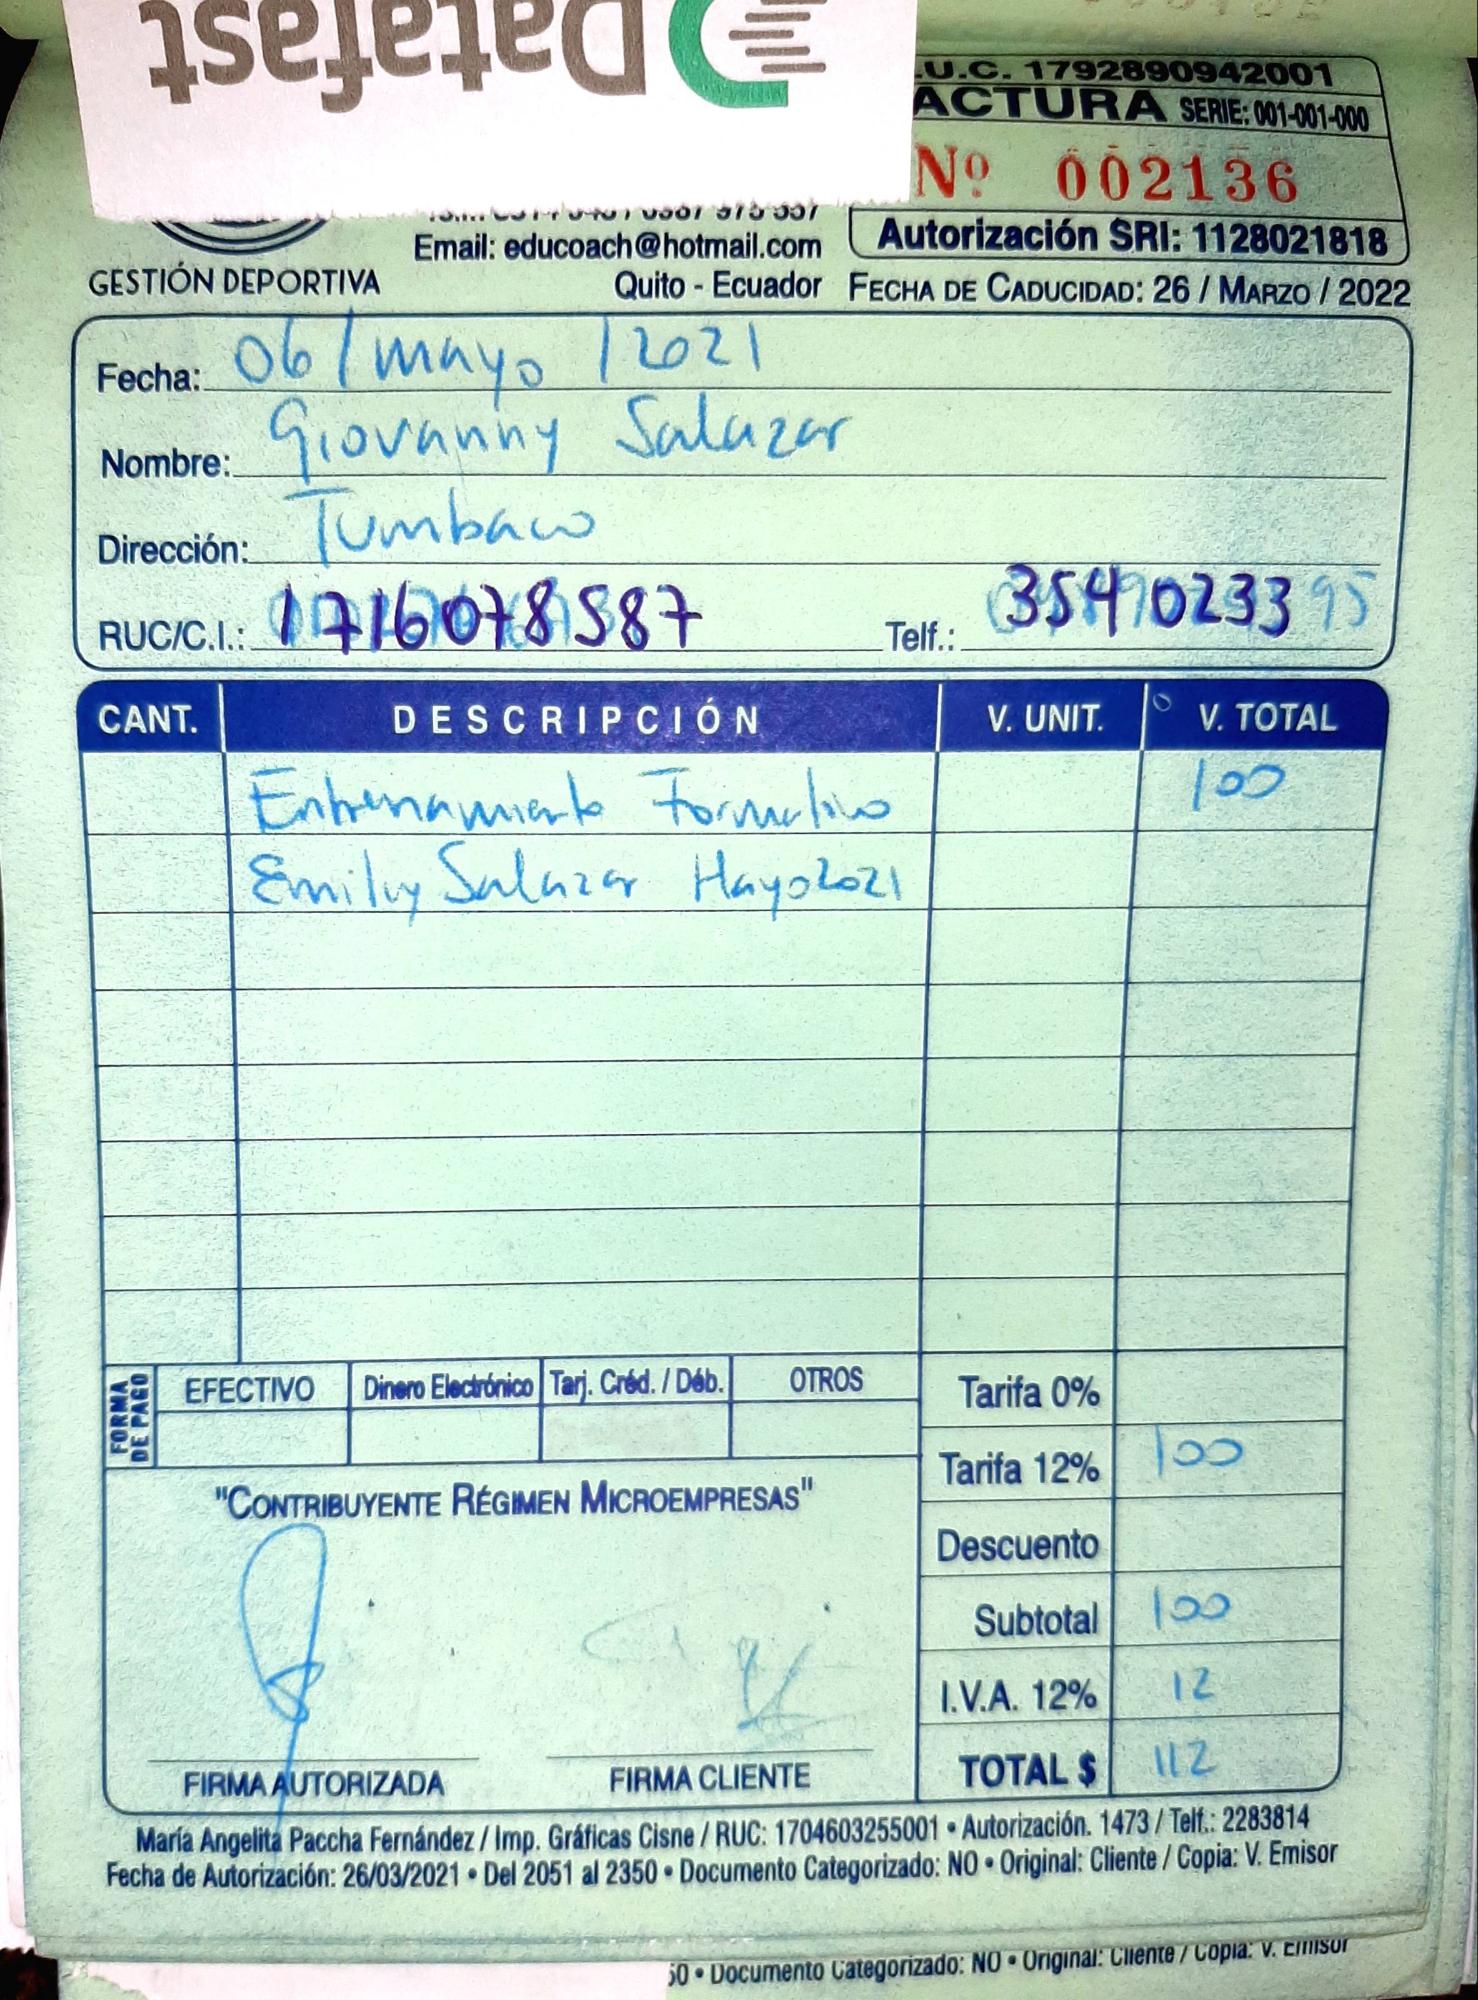 Datafast
.U.C. 1792890942001
ACTURA SERIE: 001-001-000
Nº 002136
Autorización SRI: 1128021818
Email: educoach@hotmail.com
GESTIÓN DEPORTIVA
Quito - Ecuador
FECHA DE CADUCIDAD: 26 / MARZO / 2022
Fecha: 06 / mayo / 2021
Nombre: Giovanny Salazar
Dirección: Tumbaco
RUC/C.I.: 1716078587 Telf.: 35490233
CANT. DESCRIPCIÓN V. UNIT. V. TOTAL
Entrenamiento Formativo 100
Emily Salazar Mayo 2021
FORMA DE PAGO EFECTIVO Dinero Electrónico Tarj. Créd. / Déb. OTROS
Tarifa 0%
Tarifa 12% 100
Descuento
Subtotal 100
I.V.A. 12% 12
TOTAL $ 112
"CONTRIBUYENTE RÉGIMEN MICROEMPRESAS"
FIRMA AUTORIZADA FIRMA CLIENTE
María Angelita Paccha Fernández / Imp. Gráficas Cisne / RUC: 1704603255001 • Autorización. 1473 / Telf.: 2283814
Fecha de Autorización: 26/03/2021 • Del 2051 al 2350 • Documento Categorizado: NO • Original: Cliente / Copia: V. Emisor
50 • Documento Categorizado: NO • Original: Cliente / Copia: V. Emisor